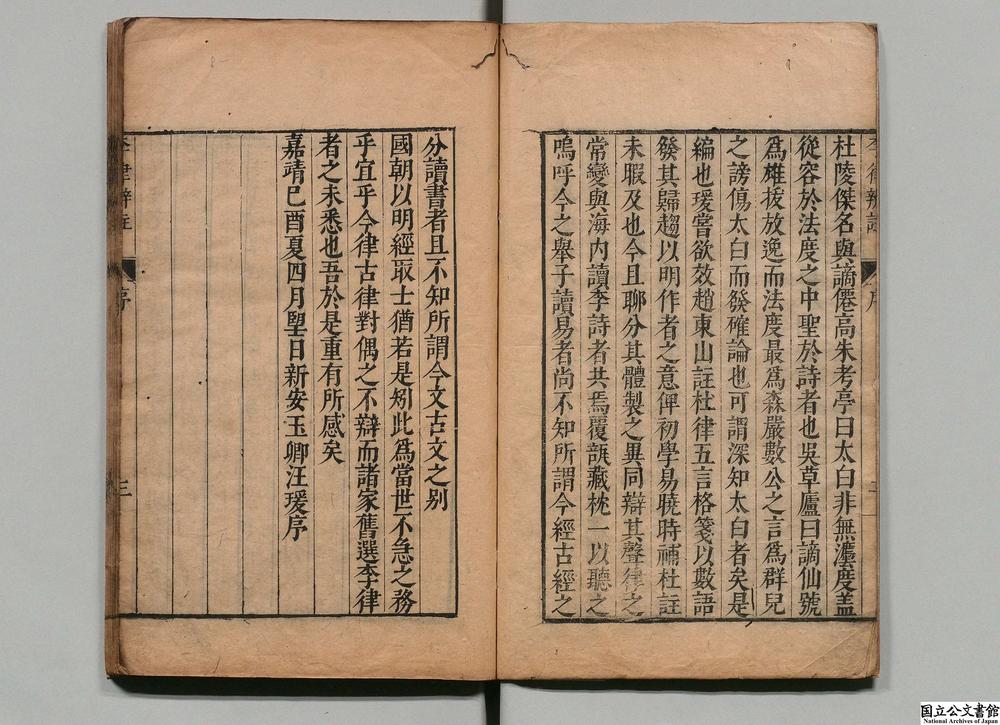 杜陵傑名與謫僊高朱考亭曰太白非無灋度盖
從容於法度之中聖於詩者也吳草廬曰謫仙號
爲雄拔放逸而法度最爲森嚴數公之言爲群兒
之謗傷太白而發確論也可謂深知太白者矣是
編也瑗嘗欲效趙東山註杜律五言格箋以數語
發其歸趨以明作者之意俾初學易曉時補杜註
未暇及也今且聊分其體製之異同辯其聲律之
常變與海内讀李詩者共焉覆瓿藏枕一以聽之
嗚呼今之舉子讀易者尚不知所謂今經古經之
李律辨註
序
三
分讀書者且不知所謂今文古文之别
國朝以明經取士猶若是矧此爲當世不急之務
乎宜乎今律古律對偶之不辯而諸家舊選李律
者之未悉也吾於是重有所感矣
嘉靖己酉夏四月望日新安玉卿汪瑗序
国立公文書館
National Archives of Japan